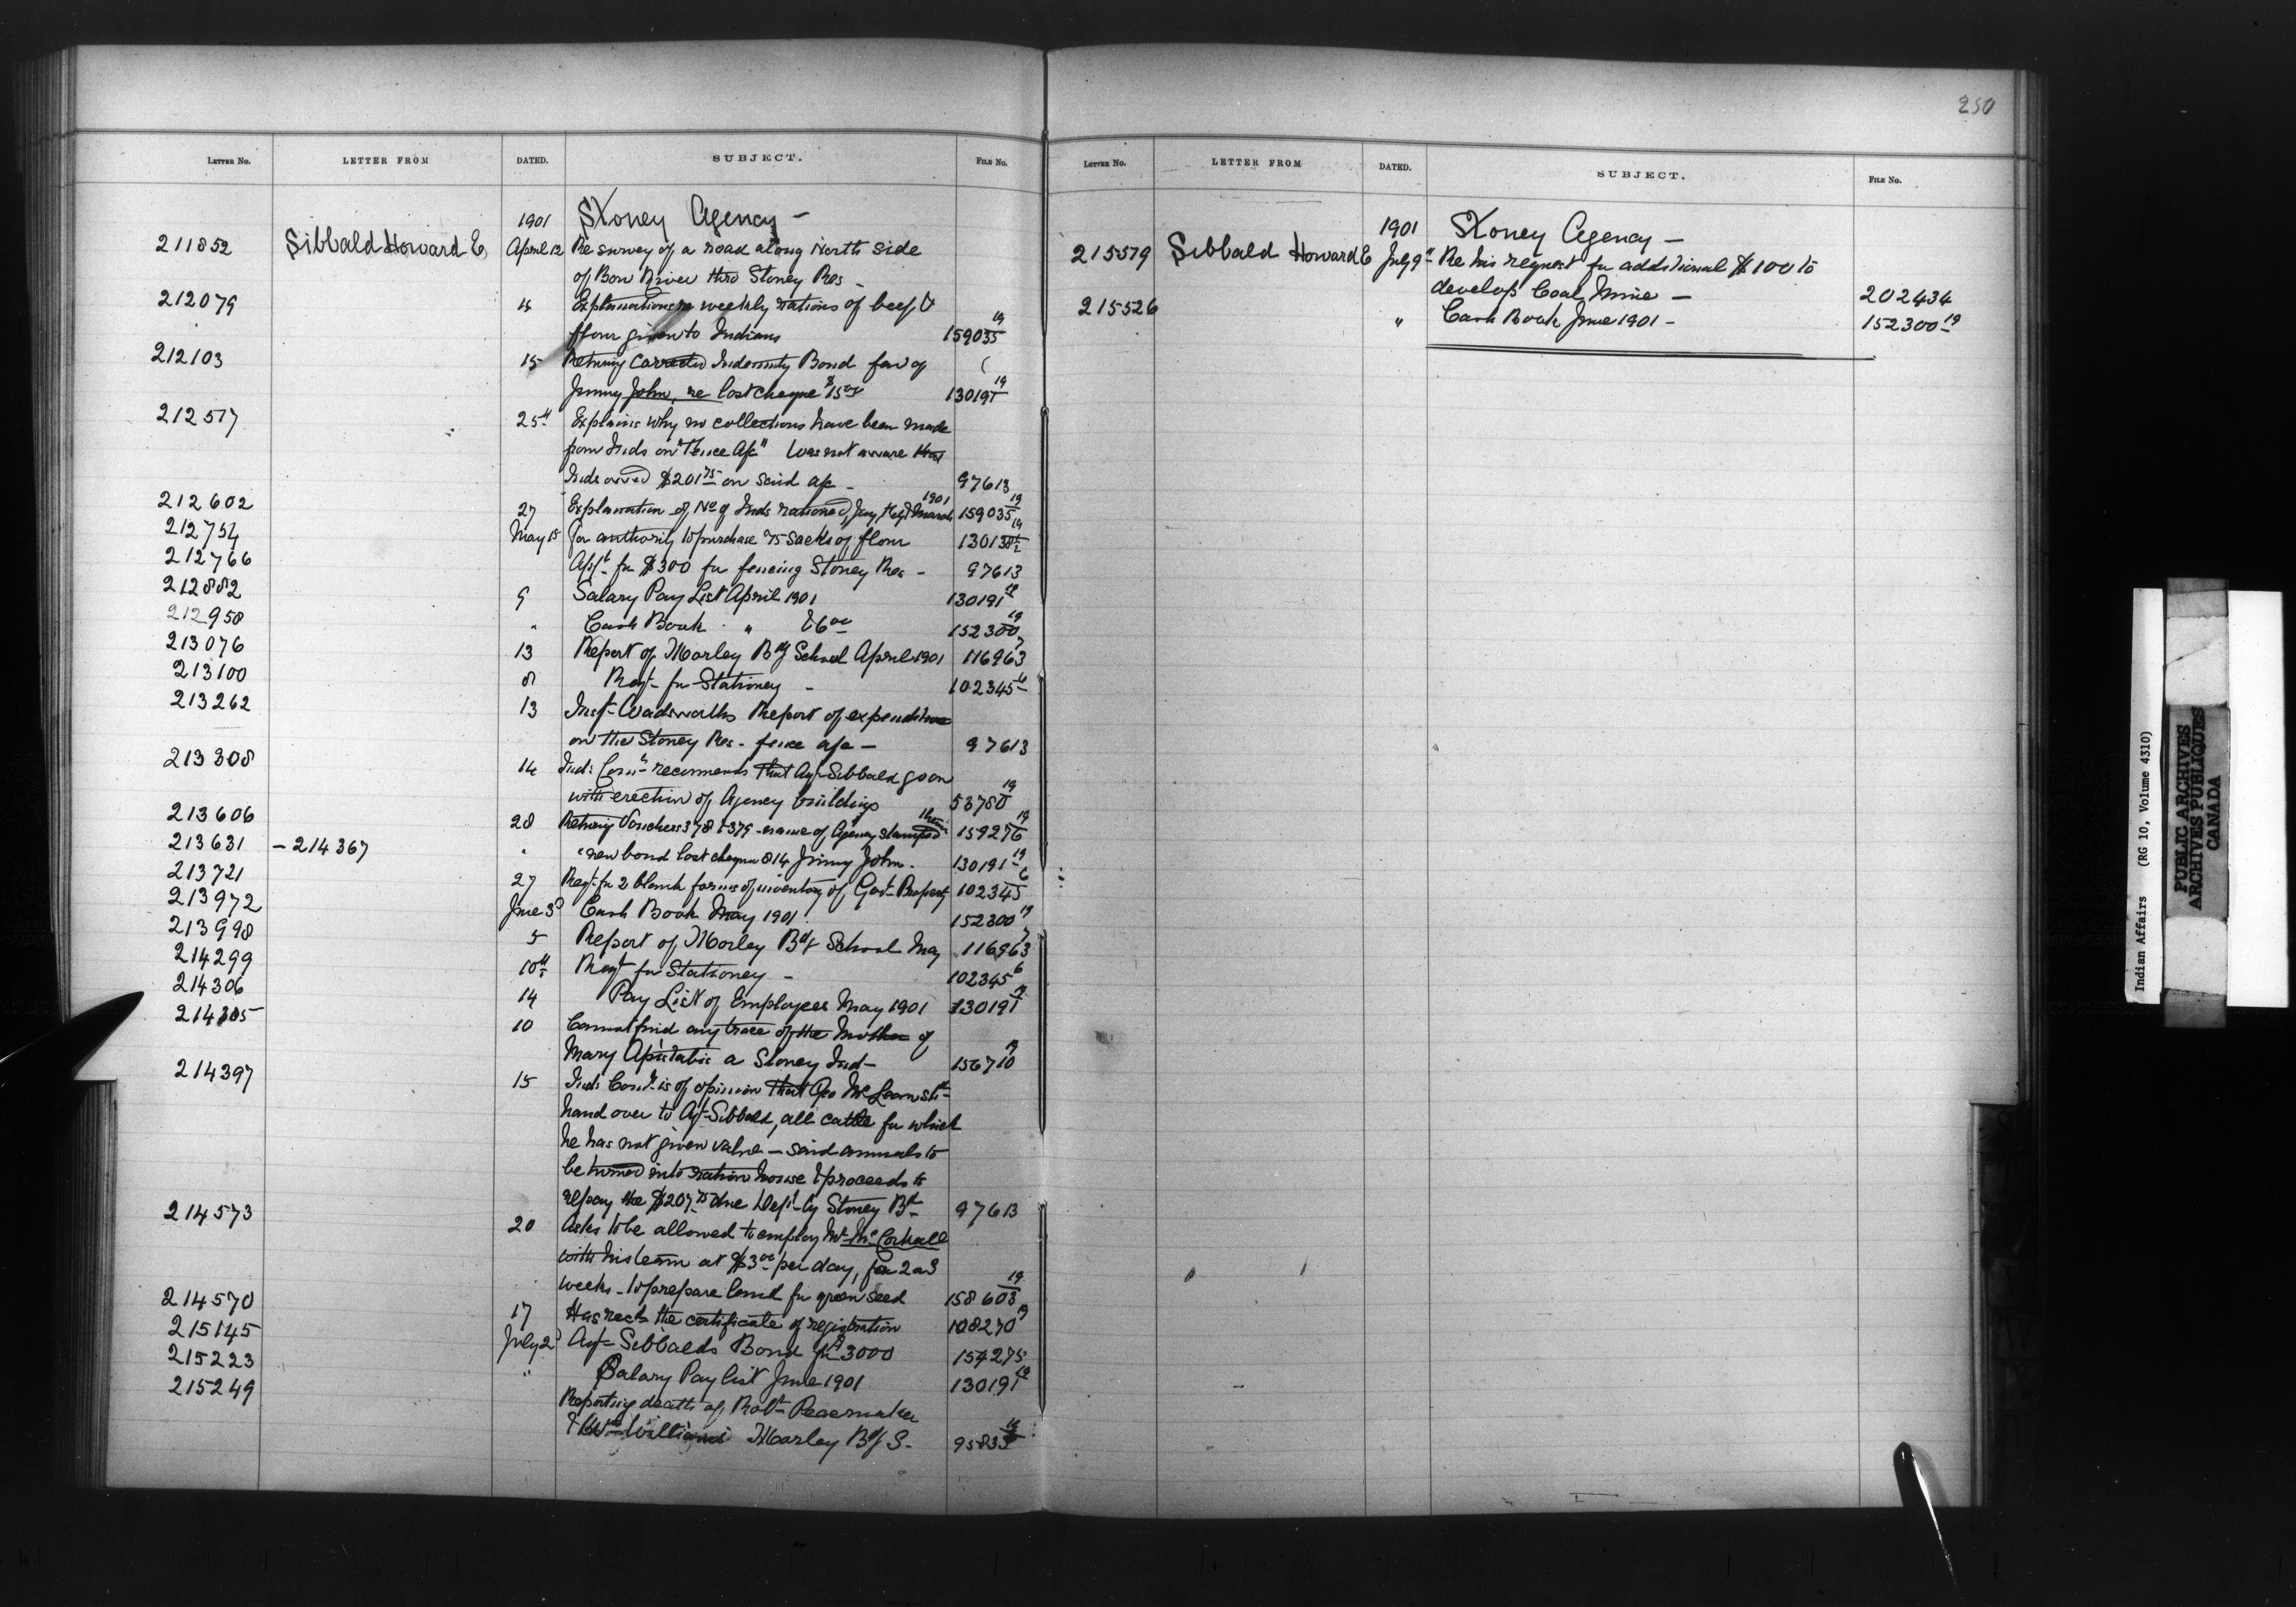 250
LETTER NO. LETTER FROM DATED. SUBJECT. FILE NO.
1901 Stoney Agency —
211852 Sibbald Howard E April 12 Re survey of a road along North side
of Bow River thro Stoney Res —
212079 " Explanations re weekly rations of beef &
flour given to Indians 159035 19
212103 15 Returng Corrected Indemnity Bond favr of
Jimmy John, re lost cheque $15.00 130191 19
212517 25th Explains why no collections have been made
from Inds on "Fence A/c" Was not aware that
Inds owed $201.75 on said a/c — 97613
212602 27 Explanation of No of Inds rationed, Jany Feby & March 1901 159035 19
212754 May 15 for authority to purchase 75 sacks of flour
212766 App't for $300 for fencing Stoney Res — 97613
212882 9 Salary Pay List April 1901 130191 19
212958 " Cash Book " & 6.00 152300 19
213076 13 Report of Morley Bdg School April 1901 116963 7
213100 8 Reqt for Stationey — 102345 6
213262 13 Inspt Wadsworths Report of expenditure
on the Stoney Res — fence a/c — 97613
213308 14 Ind: Comr recommends that Agt Sibbald go on
with erection of Agency buildings 53780 19
213606 28 Returng Vouchers 378 & 379 — name of Agency stamped thereon 159276 19
213631 — 214367 " " new bond lost cheque 814 Jimmy John. 130191 19
213721 27 Reqt for 2 blank forms of inventory of Govt Property 102345 6
213972 June 3d Cash Book May 1901 152300 19
213998 5 Report of Morley Bdg School May 116963 7
214299 10th Reqt for Stationey — 102345 6
214306 14 Pay List of Employees May 1901 130191 19
214305 10 Cannot find any trace of the Mother of
Mary a Stoney Ind — 156710 19
214397 15 Ind: Comr is of opinion that Geo McLean shd
hand over to Agt Sibbald, all cattle for which
he has not given value — said animals to
be turned into ration house & proceeds to
repay the $207.75 due Dept by Stoney Bd 97613
214573 20 Asks to be allowed to employ Mr
with his team at $3.00 per day, for 2 or 3
weeks — to prepare land for green seed 158603 19
214570 17 Has recd the certificate of registration 108270 19
215145 July 2d Agt Sibbalds Bond for $3000 154275
215223 " Salary Pay list June 1901 130191 19
215249 Reporting death of Robt Peacemaker
& Wm Williams Morley Bdg S. 95833
LETTER NO. LETTER FROM DATED. SUBJECT. FILE NO.
1901 Stoney Agency —
215579 Sibbald Howard E July 9th Re his request for additional $100 to
develop Coal Mine — 202434
215526 " Cash Book June 1901 — 152300 19
Indian Affairs (RG 10, Volume 4310)
PUBLIC ARCHIVES
ARCHIVES PUBLIQUES
CANADA